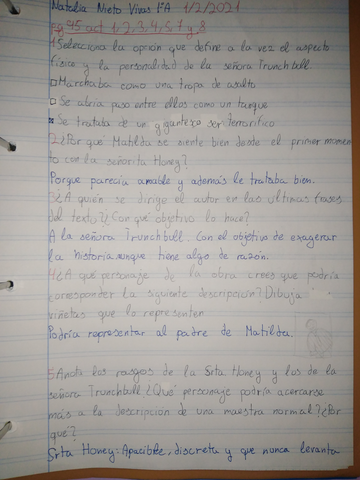 Natalia Nieto Vivas 5ºA 1/2/2021
pg 95 act 1,2,3,4,5,7 y 8
1 Selecciona la opción que define a la vez el aspecto
físico y la personalidad de la señora Trunchbull.
□ Marchaba como una tropa de asalto
□ Se abría paso entre ellos como un tanque
Se trataba de un gigantesco ser terrorífico
2 ¿Por qué Matilda se siente bien desde el primer momen
to con la señorita Honey?
Porque parecía amable y además le trataba bien.
3 ¿A quién se dirige el autor en las ultimas frases
del texto? ¿Con qué objetivo lo hace?
A la señora Trunchbull. Con el objetivo de exagerar
la historia aunque tiene algo de razón.
4 ¿A qué personaje de la obra crees que podría
corresponder la siguiente descripción? Dibuja
viñetas que lo representen
Podría representar al padre de Matilda.
5 Anota los rasgos de la Srta Honey y los de la
señora Trunchbull ¿Qué personaje podría acercarse
más a la descripción de una maestra normal? ¿Por
qué?
Srta Honey: Apacible, discreta y que nunca levanta